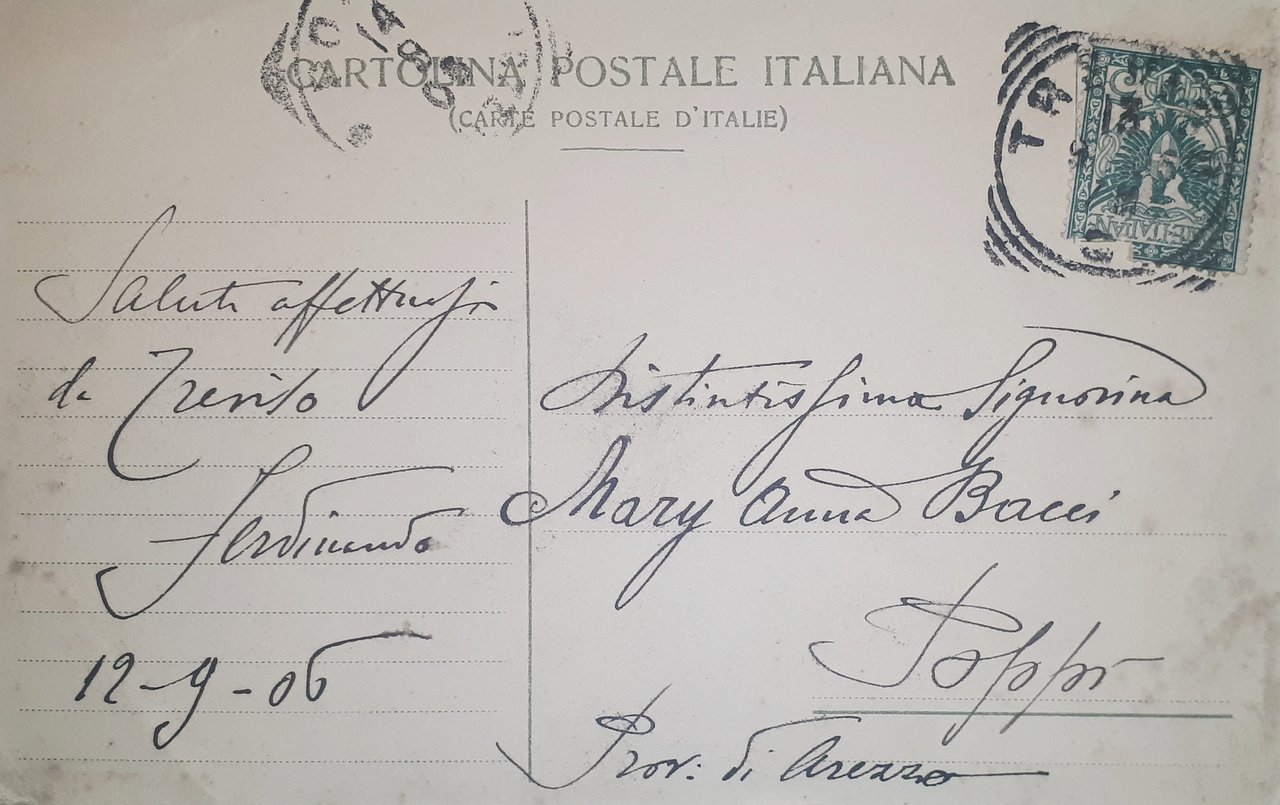 CARTOLINA POSTALE ITALIANA
(CARTE POSTALE D'ITALIE)
14
TR
13
Saluti affettuosi
da Treviso
Ferdinando
12-9-06
Distintissima Signorina
Mary Anna Bacci
Poppi
Prov: di Arezzo